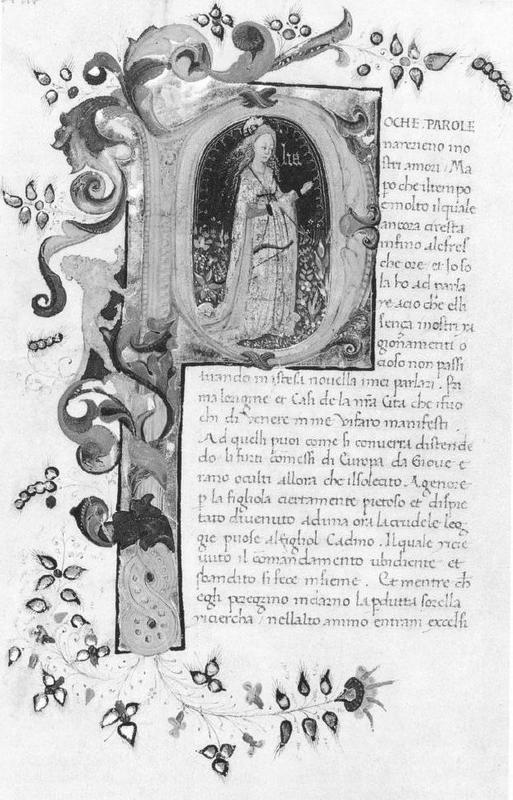 P
lia
OCHE PAROLE
narereno ino
stri amori Ma
po che il tempo
e molto il quale
ancora ci resta
infino al fres
che ore et lo so
la ho ad parla
re acio che elli
sença mostri ra
gionamenti o
cioso non passi
tirando in istesa novella i miei parlari
ma lorigine et Casi de la nrã Cita che
chi di Venere in me Vi faro manifesti .
Ad quelli puoi come si converra distende
do li furti comessi di Europa da Giove e
rano oculti allora che il solecito Agenore
p la figliola ciertamente pietoso et dispie
tato divenuto ad una ora la crudele leg
gie puose al figliol Cadmo . Il quale ricie
uuto il comãndamento ubidiente et
sbandito si fece insieme . Et mentre ch
egli peregrino indarno la pduta sorella
riciercha / nellalto animo entrani excelsi